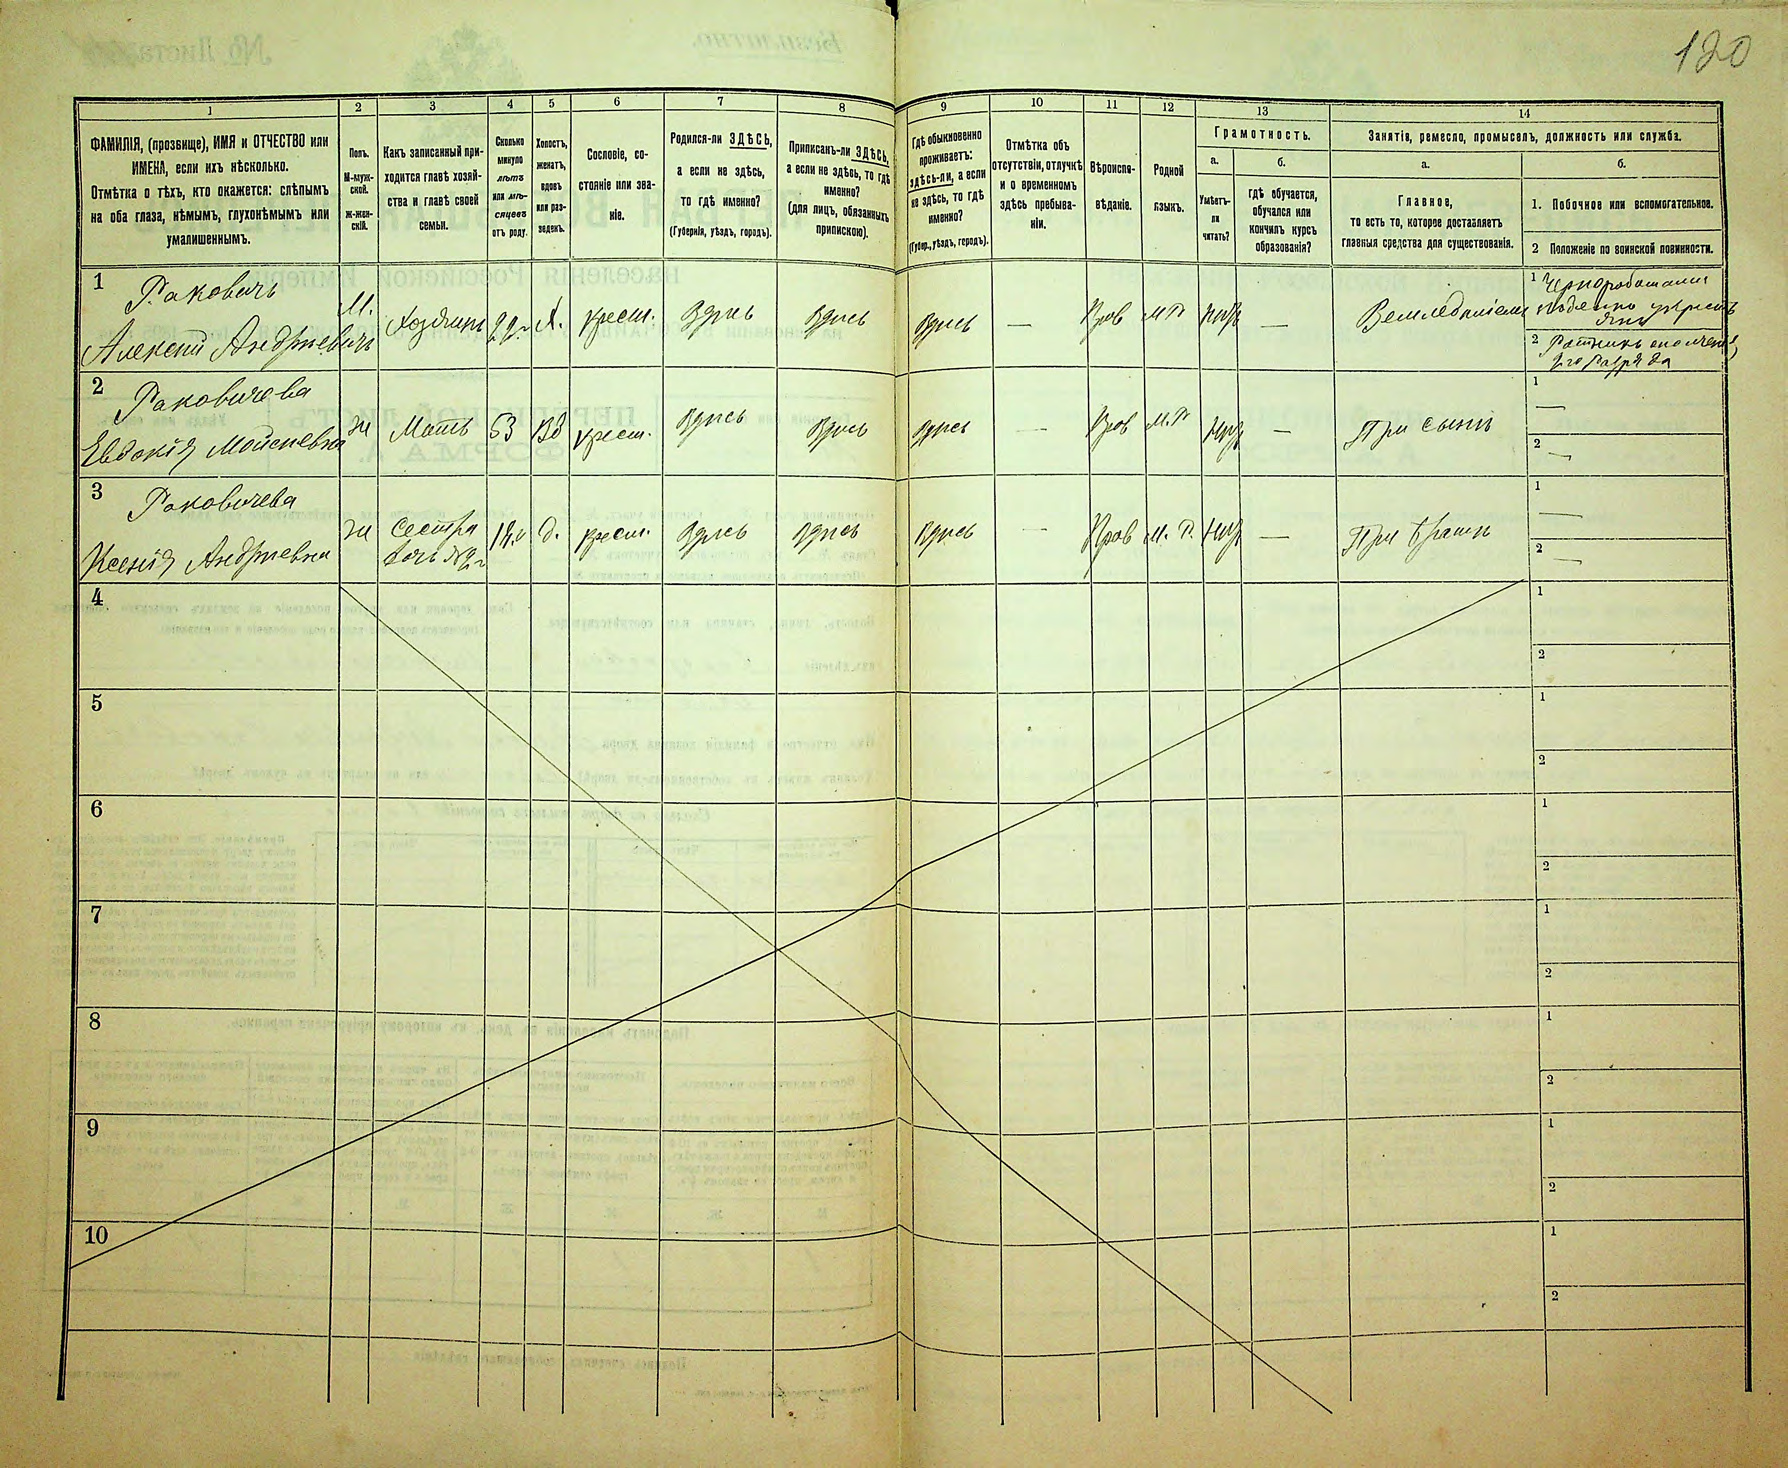 120
1
2
3
4
5
6
7
8
9
10
11
12
13
14
ФАМИЛІЯ, (прозвище), ИМЯ и ОТЧЕСТВО или
ИМЕНА, если ихъ нѣсколько.
Отмѣтка о тѣхъ, кто окажется: слѣпымъ
на оба глаза, нѣмымъ, глухонѣмымъ или
умалишеннымъ.
Полъ.
М-муж-
ской.
Ж-жен-
скій.
Какъ записанный при-
ходится главѣ хозяй-
ства и главѣ своей
семьи.
Сколько
минуло
лѣтъ
или мѣ-
сяцевъ
отъ роду.
Холостъ,
женатъ,
вдовъ
или раз-
веденъ.
Сословіе, со-
стояніе или зва-
ніе.
Родился-ли ЗДѢСЬ,
а если не здѣсь,
то гдѣ именно?
(Губернія, уѣздъ, городъ).
Приписанъ-ли ЗДѢСЬ,
а если не здѣсь, то гдѣ
именно?
(для лицъ, обязанныхъ
припискою).
Гдѣ обыкновенно
проживаетъ:
здѣсь-ли, а если
не здѣсь, то гдѣ
именно?
(Губер., уѣздъ, городъ).
Отмѣтка объ
отсутствіи, отлучкѣ
и о временномъ
здѣсь пребыва-
ніи.
Вѣроиспо-
вѣданіе.
Родной
языкъ.
Грамотность.
а.
б.
Умѣетъ-
ли
читать?
Гдѣ обучается,
обучался или
кончилъ курсъ
образованія?
Занятія, ремесло, промыселъ, должность или служба.
а.
б.
Главное,
то есть то, которое доставляетъ
главныя средства для существованія.
1. Побочное или вспомогательное.
2 Положеніе по воинской повинности.
1
Раковичъ
Алексѣй Андреевичъ
М.
Хозяинъ
22г
Х.
крест.
Здѣсь
Здѣсь
Здѣсь
—
Прав
М.Р.
—
Земледѣліемъ
1
2 Ратникъ
2го разряда
2
Раковичева
Евдокія Мойсеевна
ж
Мать
63
Вд
крест.
Здѣсь
Здѣсь
Здѣсь
—
Прав
М.Р
—
При сынѣ
1
—
2
—
3
Раковичева
Ксенія Андреевна
ж
Сестра
дочь №2й
18
д.
крест.
Здѣсь
Здѣсь
Здѣсь
—
Прав
М.Р.
—
При братѣ
1
—
2
—
4
1
2
5
1
2
6
1
2
7
1
2
8
1
2
9
1
2
10
1
2